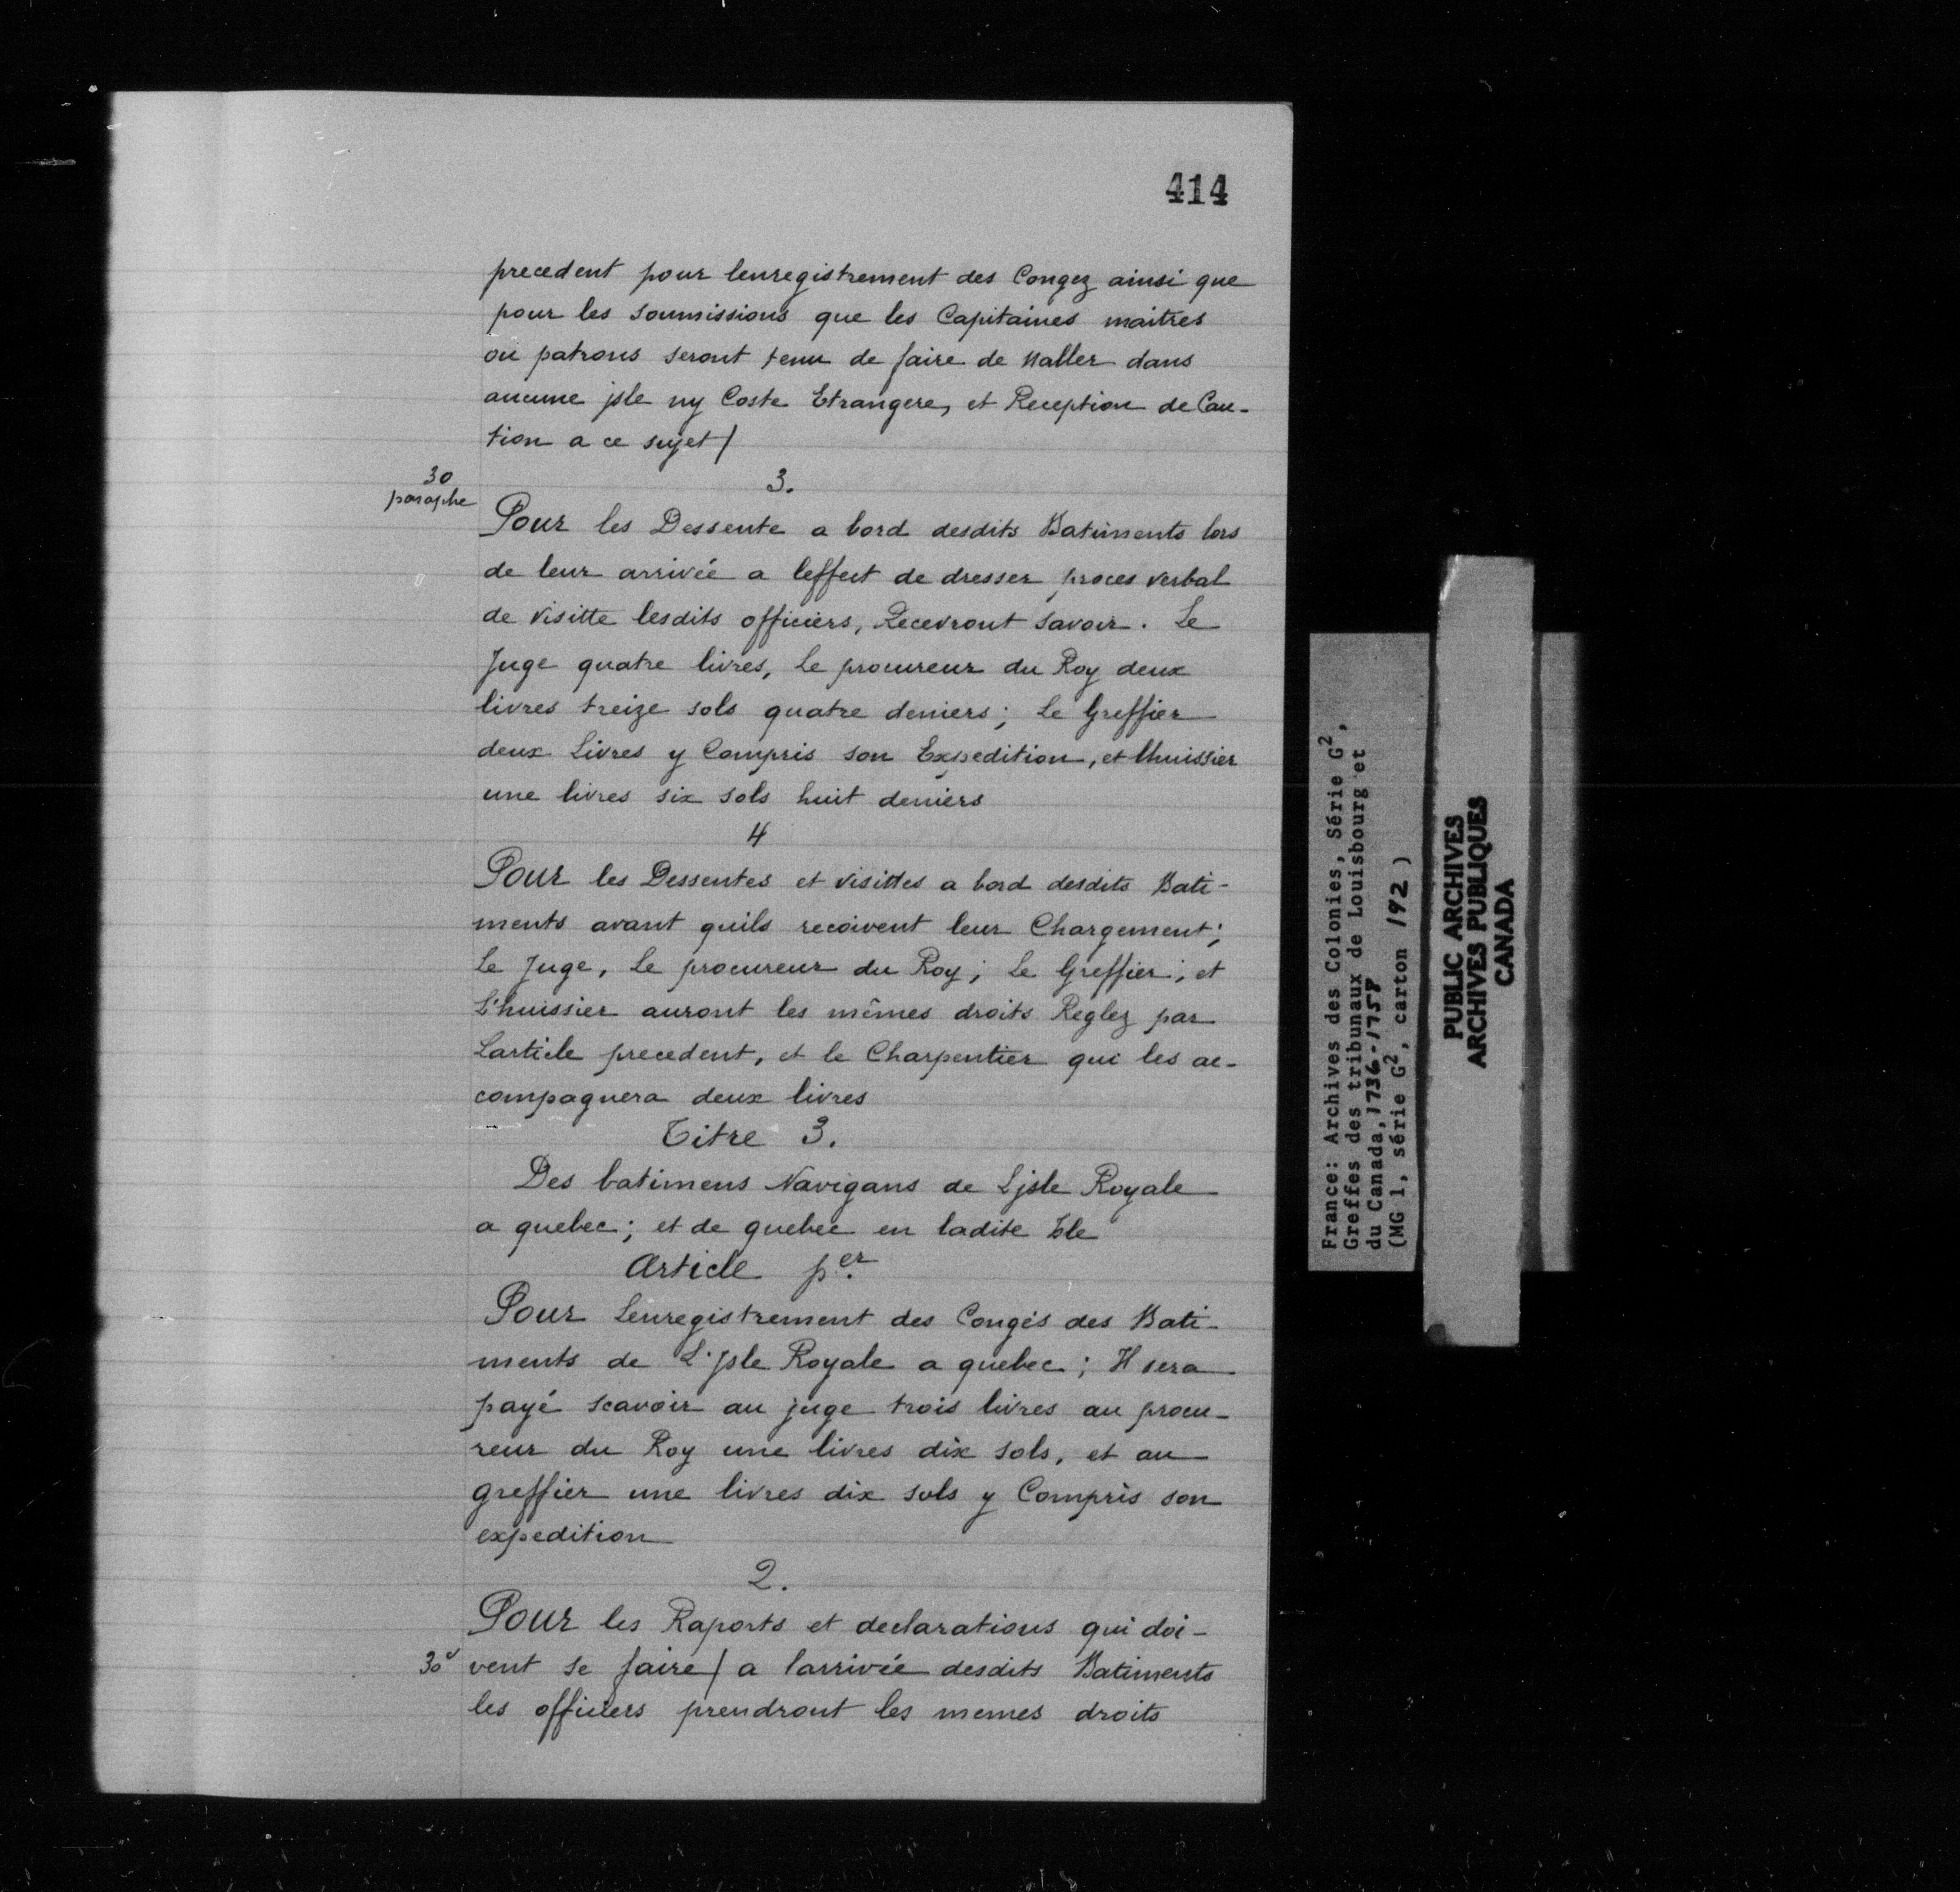 414
precedent pour lenregistrement des Congez ainsi que
pour les soumissions que les Capitaines maitres
ou patrons seront tenu de faire de Naller dans
aucune jsle ny Coste Etrangere, et Reception de Cau-
tion a ce sujet/
30
paraphe
3.
Pour les Dessente a bord desdits Batiments lors
de leur arrivée a leffect de dresser proces verbal
de visitte lesdits officiers, Recevront savoir. Le
Juge quatre livres, Le procureur du Roy deux
livres treize sols quatre deniers; Le Greffier
deux Livres y Compris son Expedition, et lhuissier
une livres six sols huit deniers
4
Pour les Dessentes et visittes a bord desdits Bati-
ments avant quils recoivent leur Chargement;
Le Juge, Le procureur du Roy; Le Greffier; et
L'huissier auront les mêmes droits Reglez par
Larticle precedent, et le Charpentier qui les ac-
compagnera deux livres
Titre 3.
Des batimens Navigans de Ljsle Royale
a quebec; et de quebec en ladite Isle
Article per.
Pour Lenregistrement des Congés des Bati-
ments de L'jsle Royale a quebec; Il sera
payé scavoir au juge trois livres au procu-
reur du Roy une livres dix sols, et au
greffier une livres dix sols y Compris son
expedition
2.
Pour les Raports et declarations qui doi-
30v vent se faire/ a larrivée desdits Batiments
les officiers prendront les memes droits
France: Archives des Colonies, Série G2,
Greffes des tribunaux de Louisbourg et
du Canada, 1736-1758
(MG 1, série G2, carton 192)
PUBLIC ARCHIVES
ARCHIVES PUBLIQUES
CANADA